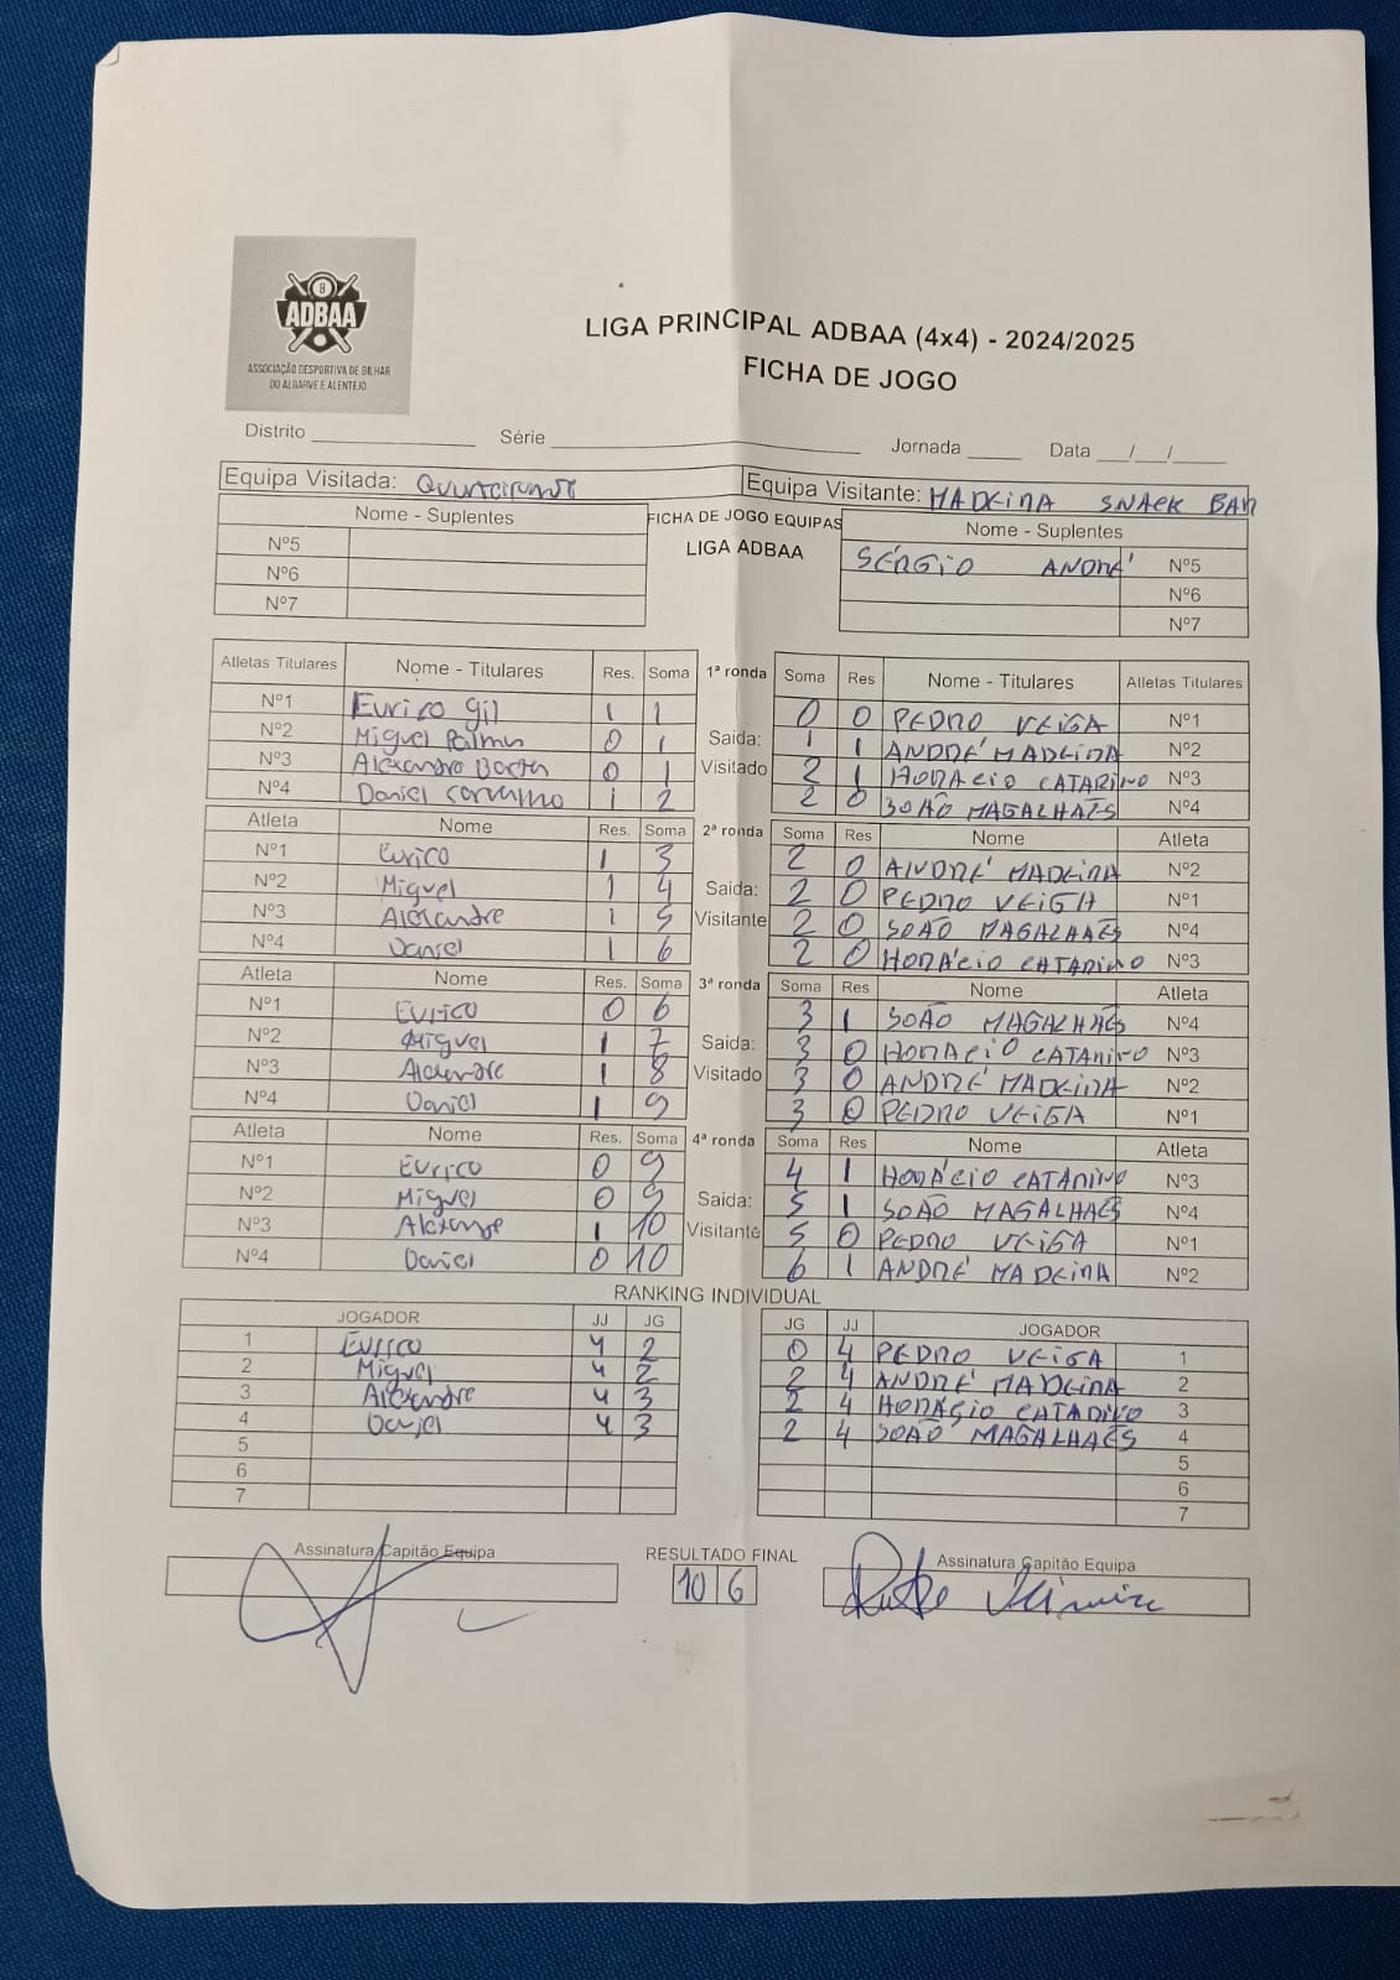 8
ADBAA
ASSOCIAÇÃO DESPORTIVA DE BILHAR
DO ALGARVE E ALENTEJO
LIGA PRINCIPAL ADBAA (4x4) - 2024/2025
FICHA DE JOGO
Distrito ___ Série ___ Jornada ___ Data __/__/__
Equipa Visitada: Equipa Visitante: MADEIRA SNACK BAR
Nome - Suplentes FICHA DE JOGO EQUIPAS Nome - Suplentes
Nº5 LIGA ADBAA SÉRGIO ANDRÉ Nº5
Nº6 Nº6
Nº7 Nº7
Atletas Titulares Nome - Titulares Res. Soma 1ª ronda Soma Res Nome - Titulares Atletas Titulares
Nº1 Eurico Gil 1 1 0 0 PEDRO VEIGA Nº1
Nº2 Miguel Palma 0 1 Saida: 1 1 ANDRÉ MADEIRA Nº2
Nº3 Alexandre 0 1 Visitado 2 1 HORÁCIO CATARINO Nº3
Nº4 Daniel Carvalho 1 2 2 0 JOÃO MAGALHÃES Nº4
Atleta Nome Res. Soma 2ª ronda Soma Res Nome Atleta
Nº1 Eurico 1 3 2 0 ANDRÉ MADEIRA Nº2
Nº2 Miguel 1 4 Saida: 2 0 PEDRO VEIGA Nº1
Nº3 Alexandre 1 5 Visitante 2 0 JOÃO MAGALHÃES Nº4
Nº4 Daniel 1 6 2 0 HORÁCIO CATARINO Nº3
Atleta Nome Res. Soma 3ª ronda Soma Res Nome Atleta
Nº1 Eurico 0 6 3 1 JOÃO MAGALHÃES Nº4
Nº2 Miguel 1 7 Saida: 3 0 HORÁCIO CATARINO Nº3
Nº3 Alexandre 1 8 Visitado 3 0 ANDRÉ MADEIRA Nº2
Nº4 Daniel 1 9 3 0 PEDRO VEIGA Nº1
Atleta Nome Res. Soma 4ª ronda Soma Res Nome Atleta
Nº1 Eurico 0 9 4 1 HORÁCIO CATARINO Nº3
Nº2 Miguel 0 9 Saida: 5 1 JOÃO MAGALHÃES Nº4
Nº3 Alexandre 1 10 Visitante 5 0 PEDRO VEIGA Nº1
Nº4 Daniel 0 10 6 1 ANDRÉ MADEIRA Nº2
RANKING INDIVIDUAL
JOGADOR JJ JG JG JJ JOGADOR
1 Eurico 4 2 0 4 PEDRO VEIGA 1
2 Miguel 4 2 2 4 ANDRÉ MADEIRA 2
3 Alexandre 4 3 2 4 HORÁCIO CATARINO 3
4 Daniel 4 3 2 4 JOÃO MAGALHÃES 4
5 5
6 6
7 7
Assinatura Capitão Equipa RESULTADO FINAL Assinatura Capitão Equipa
10 6